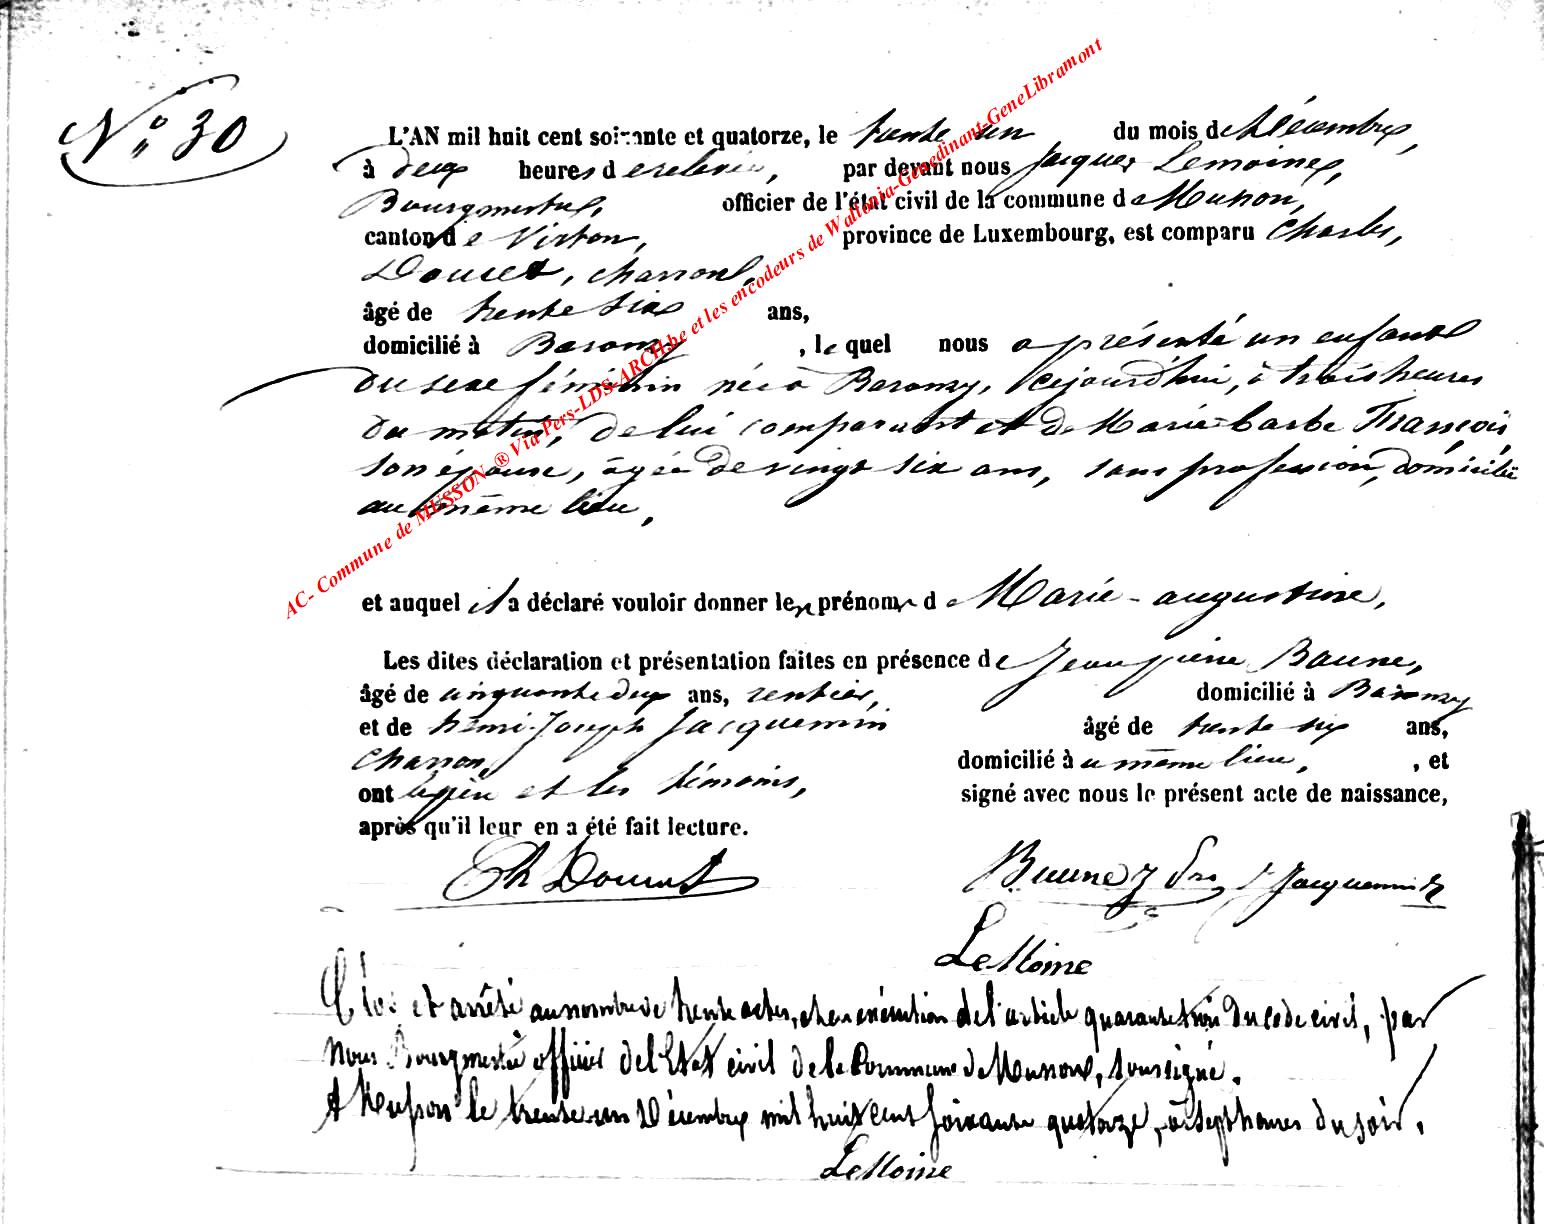 N° 30
L'AN mil huit cent soixante et quatorze, le trente un du mois de Décembre,
à deux heures de relevée, par devant nous Jacques Lemoine,
Bourgmestre, officier de l'état civil de la commune de Musson,
canton de Virton, province de Luxembourg, est comparu Charles,
Doucet, charron,
âgé de trente six ans,
domicilié à Baranzy, le quel nous a présenté un enfant
du sexe féminin née à Baranzy, cejourd'hui, à trois heures
du matin, de lui comparant et de Marie-barbe François
son épouse, âgée de vingt six ans, sans profession, domiciliée
au même lieu,
et auquel il a déclaré vouloir donner les prénoms de Marie-augustine,
Les dites déclaration et présentation faites en présence de Jean pierre Baune,
âgé de cinquante deux ans, rentier, domicilié à Baranzy
et de henri-Joseph Jacquemin âgé de trente six ans,
charron, domicilié à u même lieu, , et
ont le père et les témoins, signé avec nous le présent acte de naissance,
après qu'il leur en a été fait lecture.
Ch Doucet Baune J Jacquemin
LeMoine
Clos et arrêté au nombre de trente actes, et en exécution de l'article quarante trois du code civil, par
Nous Bourgmestre officier de l'Etat civil de la Commune de Musson, soussigné.
A Musson le trente un Décembre mil huit cent soixante quatorze, à sept heures du soir.
LeMoine
AC- Commune de MUSSON ® Via Pers-LDS-ARCH.be et les encodeurs de Wallonia-Genedinant-GeneLibramont